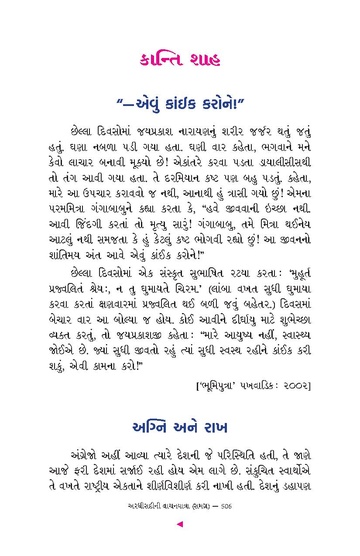 કાન્તિ શાહ
“—એવું કાંઈક કરોને!”
છેલ્લા દિવસોમાં જયપ્રકાશ નારાયણનું શરીર જર્જર થતું જતું
હતું. ઘણા નબળા પડી ગયા હતા. ઘણી વાર કહેતા, ભગવાને મને
કેવો લાચાર બનાવી મૂક્યો છે! એકાંતરે કરવા પડતા ડાયાલીસીસથી
તો તંગ આવી ગયા હતા. તે દરમિયાન કષ્ટ પણ બહુ પડતું. કહેતા,
મારે આ ઉપચાર કરાવવો જ નથી, આનાથી હું ત્રાસી ગયો છું! એમના
પરમમિત્રા ગંગાબાબુને કહ્યા કરતા કે, “હવે જીવવાની ઇચ્છા નથી.
આવી જિંદગી કરતાં તો મૃત્યુ સારું! ગંગાબાબુ, તમે મિત્રા થઈનેય
આટલું નથી સમજતા કે હું કેટલું કષ્ટ ભોગવી રહ્યો છું! આ જીવનનો
શાંતિમય અંત આવે એવું કાંઈક કરોને!”
છેલ્લા દિવસોમાં એક સંસ્કૃત સુભાષિત રટયા કરતા : ‘મુહૂર્ત
પ્રજ્વલિતં શ્રેય:, ન તુ ઘુમાયતે ચિરમ.’ (લાંબા વખત સુધી ઘુમાયા
કરવા કરતાં ક્ષણવારમાં પ્રજ્વલિત થઈ બળી જવું બહેતર.) દિવસમાં
બેચાર વાર આ બોલ્યા જ હોય. કોઈ આવીને દીર્ઘાયુ માટે શુભેચ્છા
વ્યક્ત કરતું, તો જયપ્રકાશજી કહેતા : “મારે આયુષ્ય નહીં, સ્વાસ્થ્ય
જોઈએ છે. જ્યાં સુધી જીવતો રહું ત્યાં સુધી સ્વસ્થ રહીને કાંઈક કરી
શકું, એવી કામના કરો!”
[‘ભૂમિપુત્રા’ પખવાડિક : ૨૦૦૨]
અગ્નિ અને રાખ
અંગ્રેજો અહીં આવ્યા ત્યારે દેશની જે પરિસ્થિતિ હતી, તે જાણે
આજે ફરી દેશમાં સર્જાઈ રહી હોય એમ લાગે છે. સંકુચિત સ્વાર્થોએ
તે વખતે રાષ્ટ્રીય એકતાને શીર્ણવિશીર્ણ કરી નાખી હતી. દેશનું ડહાપણ
અરધીસદીની વાચનયાત્રા (સમગ્ર) — 506